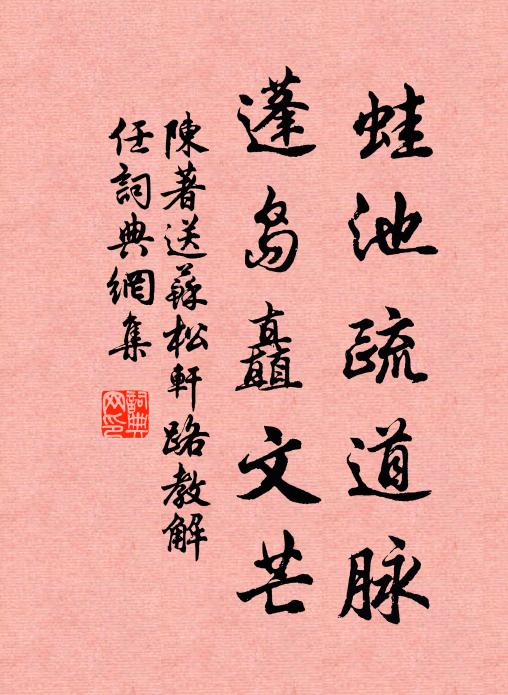 蛙池疏道脉
蓬島矗文芒
陳著送蘇松軒路教解
任詞典網集
詞典網印